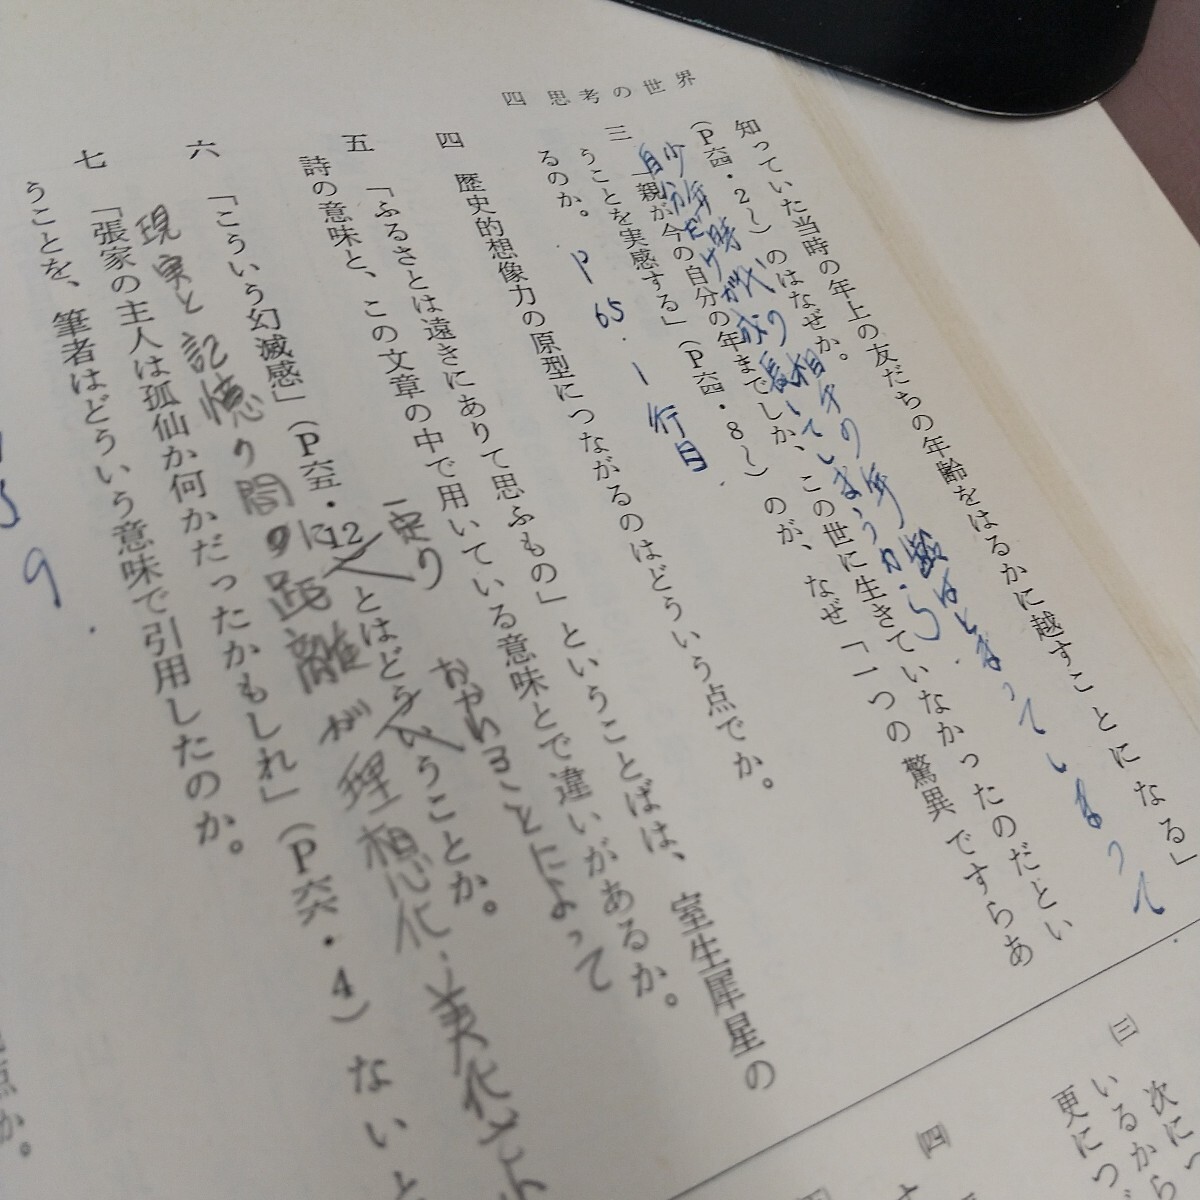 四 思考の世界
知っていた当時の年上の友だちの年齢をはるかに越すことになる」
(P六四・2〜)のはなぜか。
少年時代の相手の年齢はとまってしまって
自分だけが成長してしまうから
三 「親が今の自分の年までしか、この世に生きていなかったのだとい
うことを実感する」(P六四・8〜)のが、なぜ「一つの驚異ですらあ
るのか。
P65.1行目
四 歴史的想像力の原型につながるのはどういう点でか。
五 「ふるさとは遠きにありて思ふもの」ということばは、室生犀星の
詩の意味と、この文章の中で用いている意味とで違いがあるか。
一定り
ことによって
六 「こういう幻滅感」(P六五・12)とはどういうことか。
現実と記憶の間の に距離が理想化・美化
七 「張家の主人は孤仙か何かだったかもしれ」(P六六・4)ないと
うことを、筆者はどういう意味で引用したのか。
9
点か。
(三) 次につ
いるから
更につ
(四)